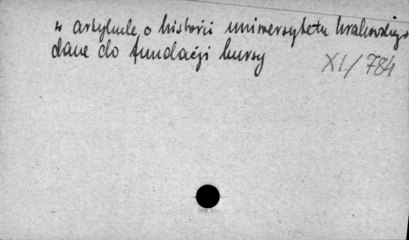 w artykule o historii uniwersytetu krakowskiego
dane do fundacji bursy
XI/784